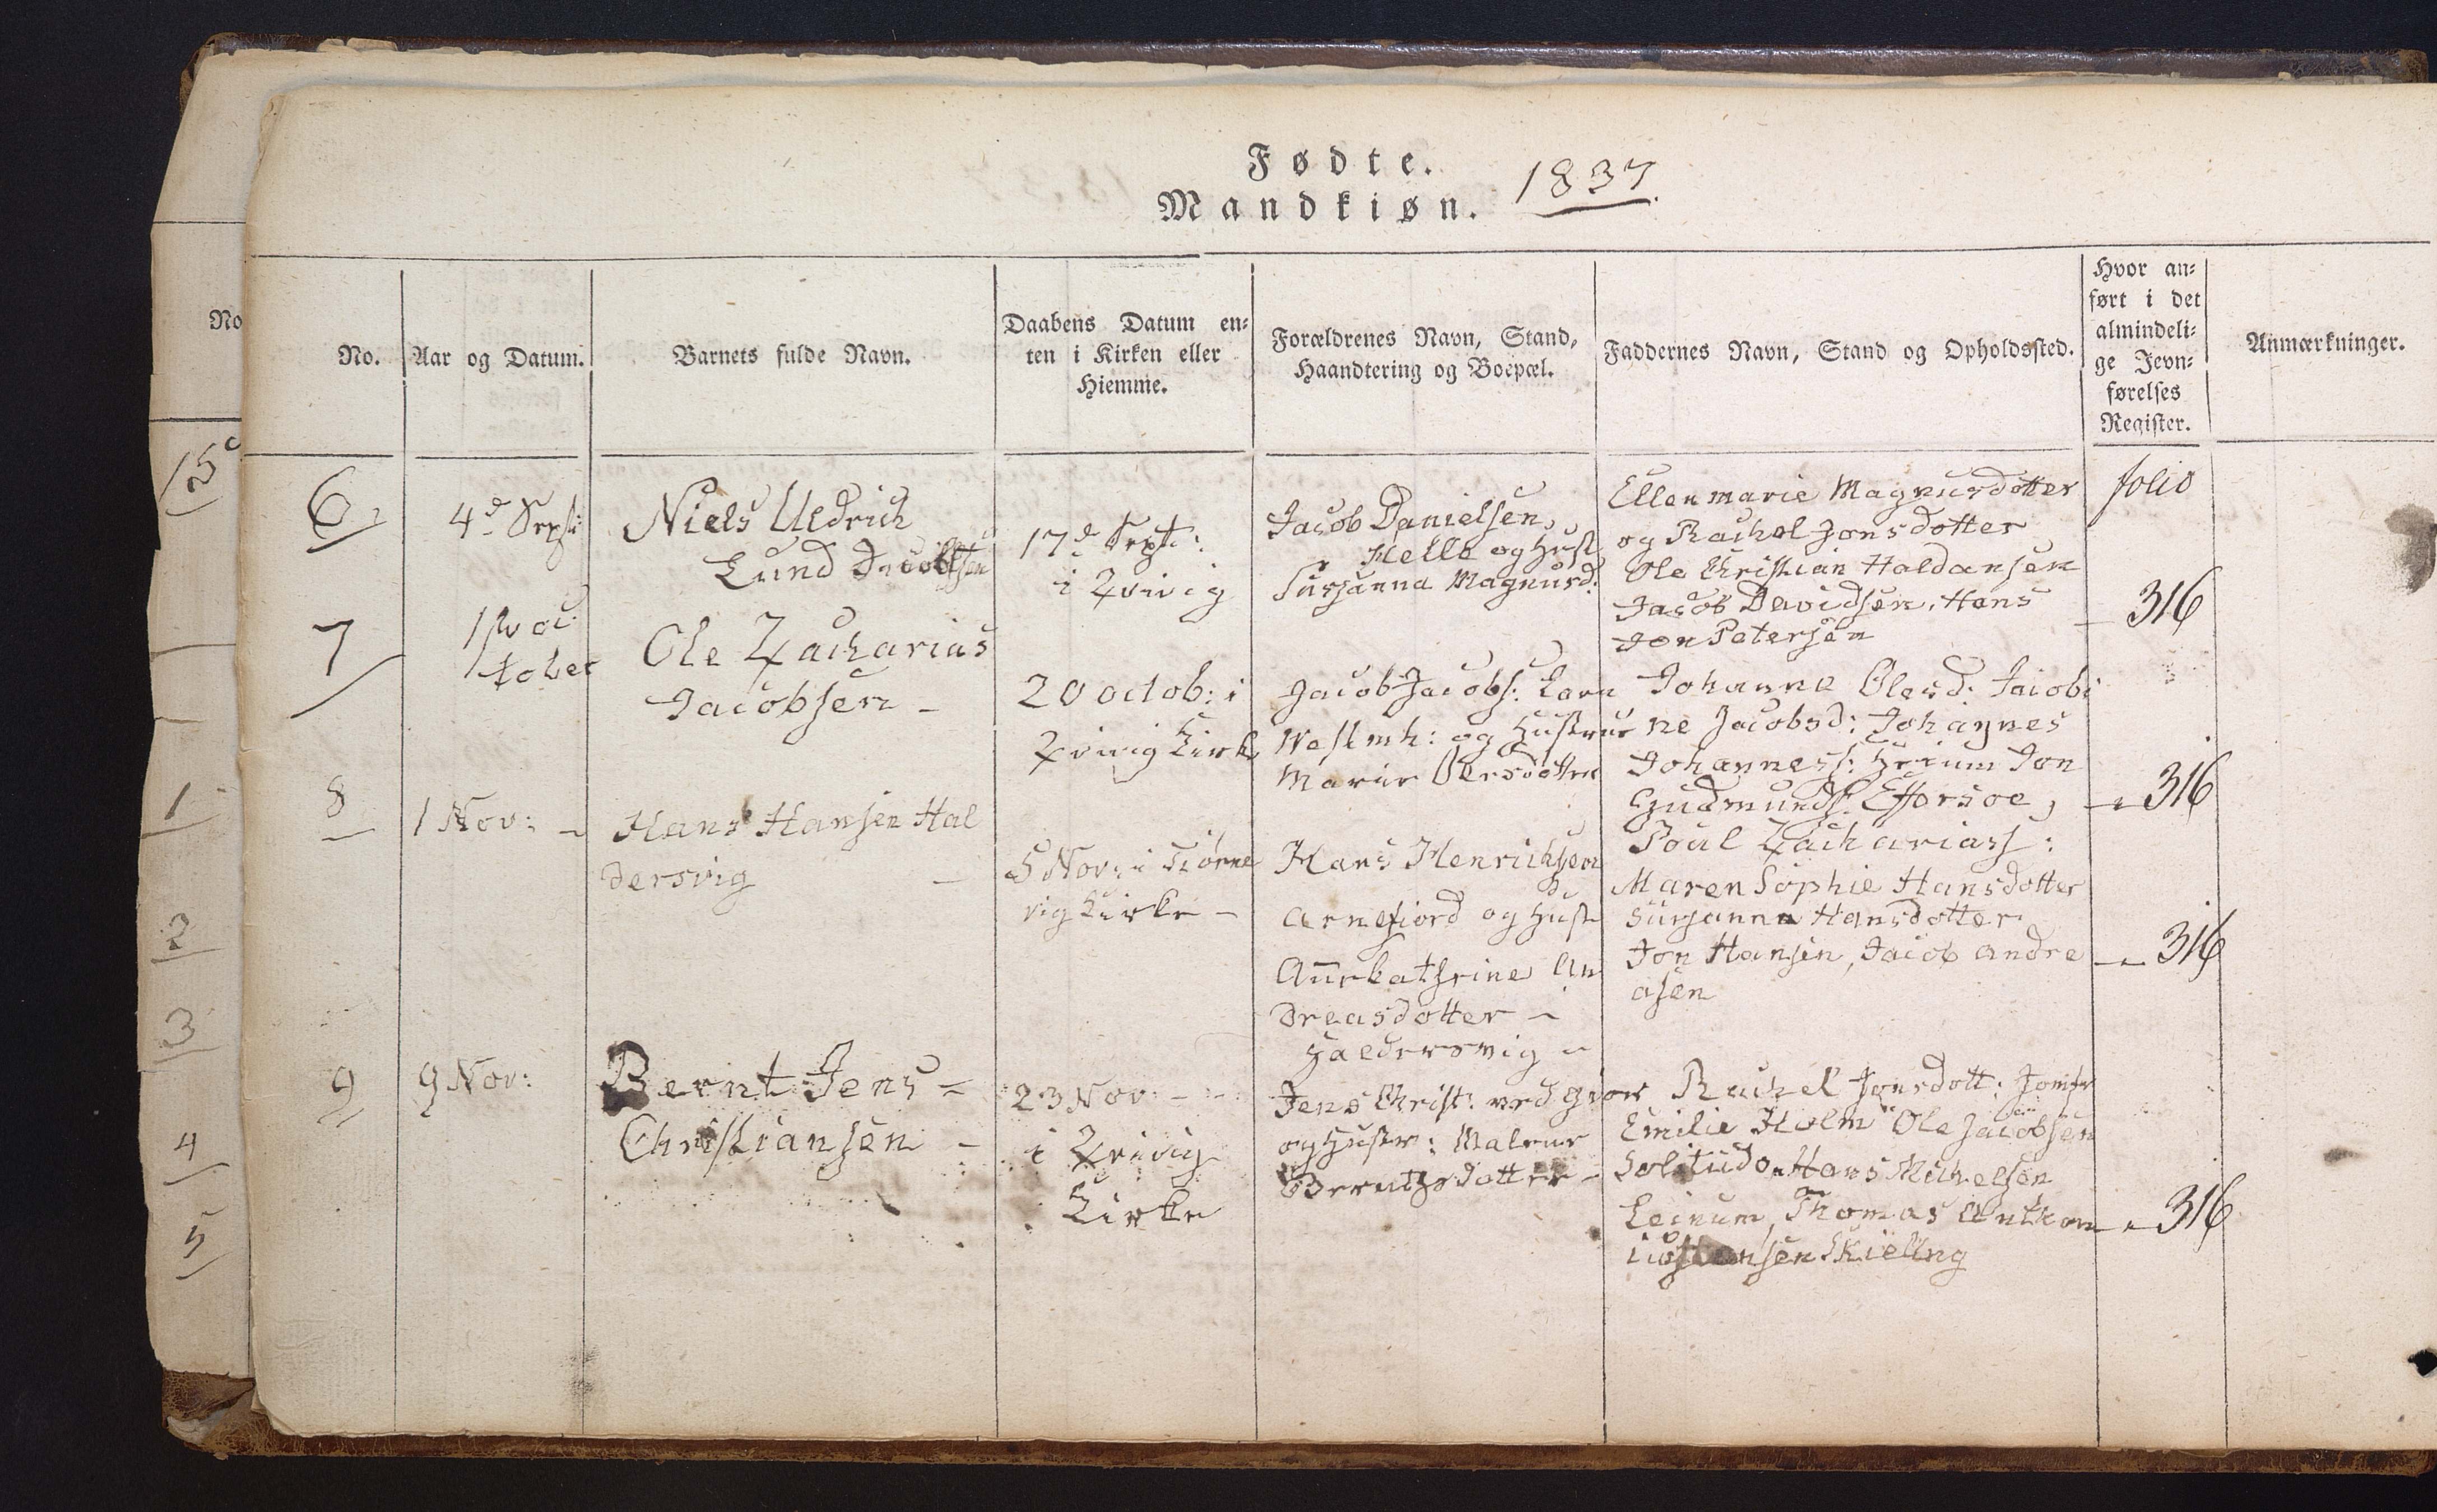 Fødte.
Mandkiøn. 1837.
No. Aar og Datum. Barnets fulde Navn. Daabens Datum en=
ten i Kirken eller
Hiemme. Forældrenes Navn, Stand,
Haandtering og Boepæl. Faddernes Navn, Stand og Opholdssted. Hvor an=
ført i det
almindeli=
ge Jevn=
førelses
Register. Anmærkninger.
No
15
1
2
3
4
5
6
4d Sept:
Niels Uldrich
Lund Jacobsen
17d Sept:
i Qvivig
Jacob Danielsen,
Melle og Hust
Susanna Magnusd:
Ellenmarie Magnusdotter
og Rachel Jonsdotter
Ole Christian Haldansen
Jacob Davidsen, Hans
Jon Petersen
folio
316
7
1ste oc
tober
Ole Zacharias
Jacobsen -
20 octob: i
Qvivig Kirk
Jacob Jacobs:
Westmh: og Hustrue
Marie Olersdotter
Johanne Olesd: Jacobi
ne Jacobsd: Johannes
Johanness: Jon
Gudmunds:
Poul Zachariass:
316
8
1 Nov: -
Hans Hansen Hal
dersvig -
5 Nov: i Tiørne
vig Kirke -
Hans Henrichsen
Arnefiord og Hust
Annkathrine An
dreasdotter -
Haldersvig -
Maren Sophie Hansdotter
Susanna Hansdotter
Jon Hansen, Jacob Andre
asen
316
9
9 Nov:
Bernt Jens -
Christiansen -
23 Nov: -
i Qvivig
Kirke
Jens Christ: ved Giov
og Hustr: Malene
Berntsdotter -
Rachel Jonsdott: Jomfr
Emilie Holm Ole Jacobsen
Solitudo Hans Michelsen
Leinum, Thomas
Skielling
316